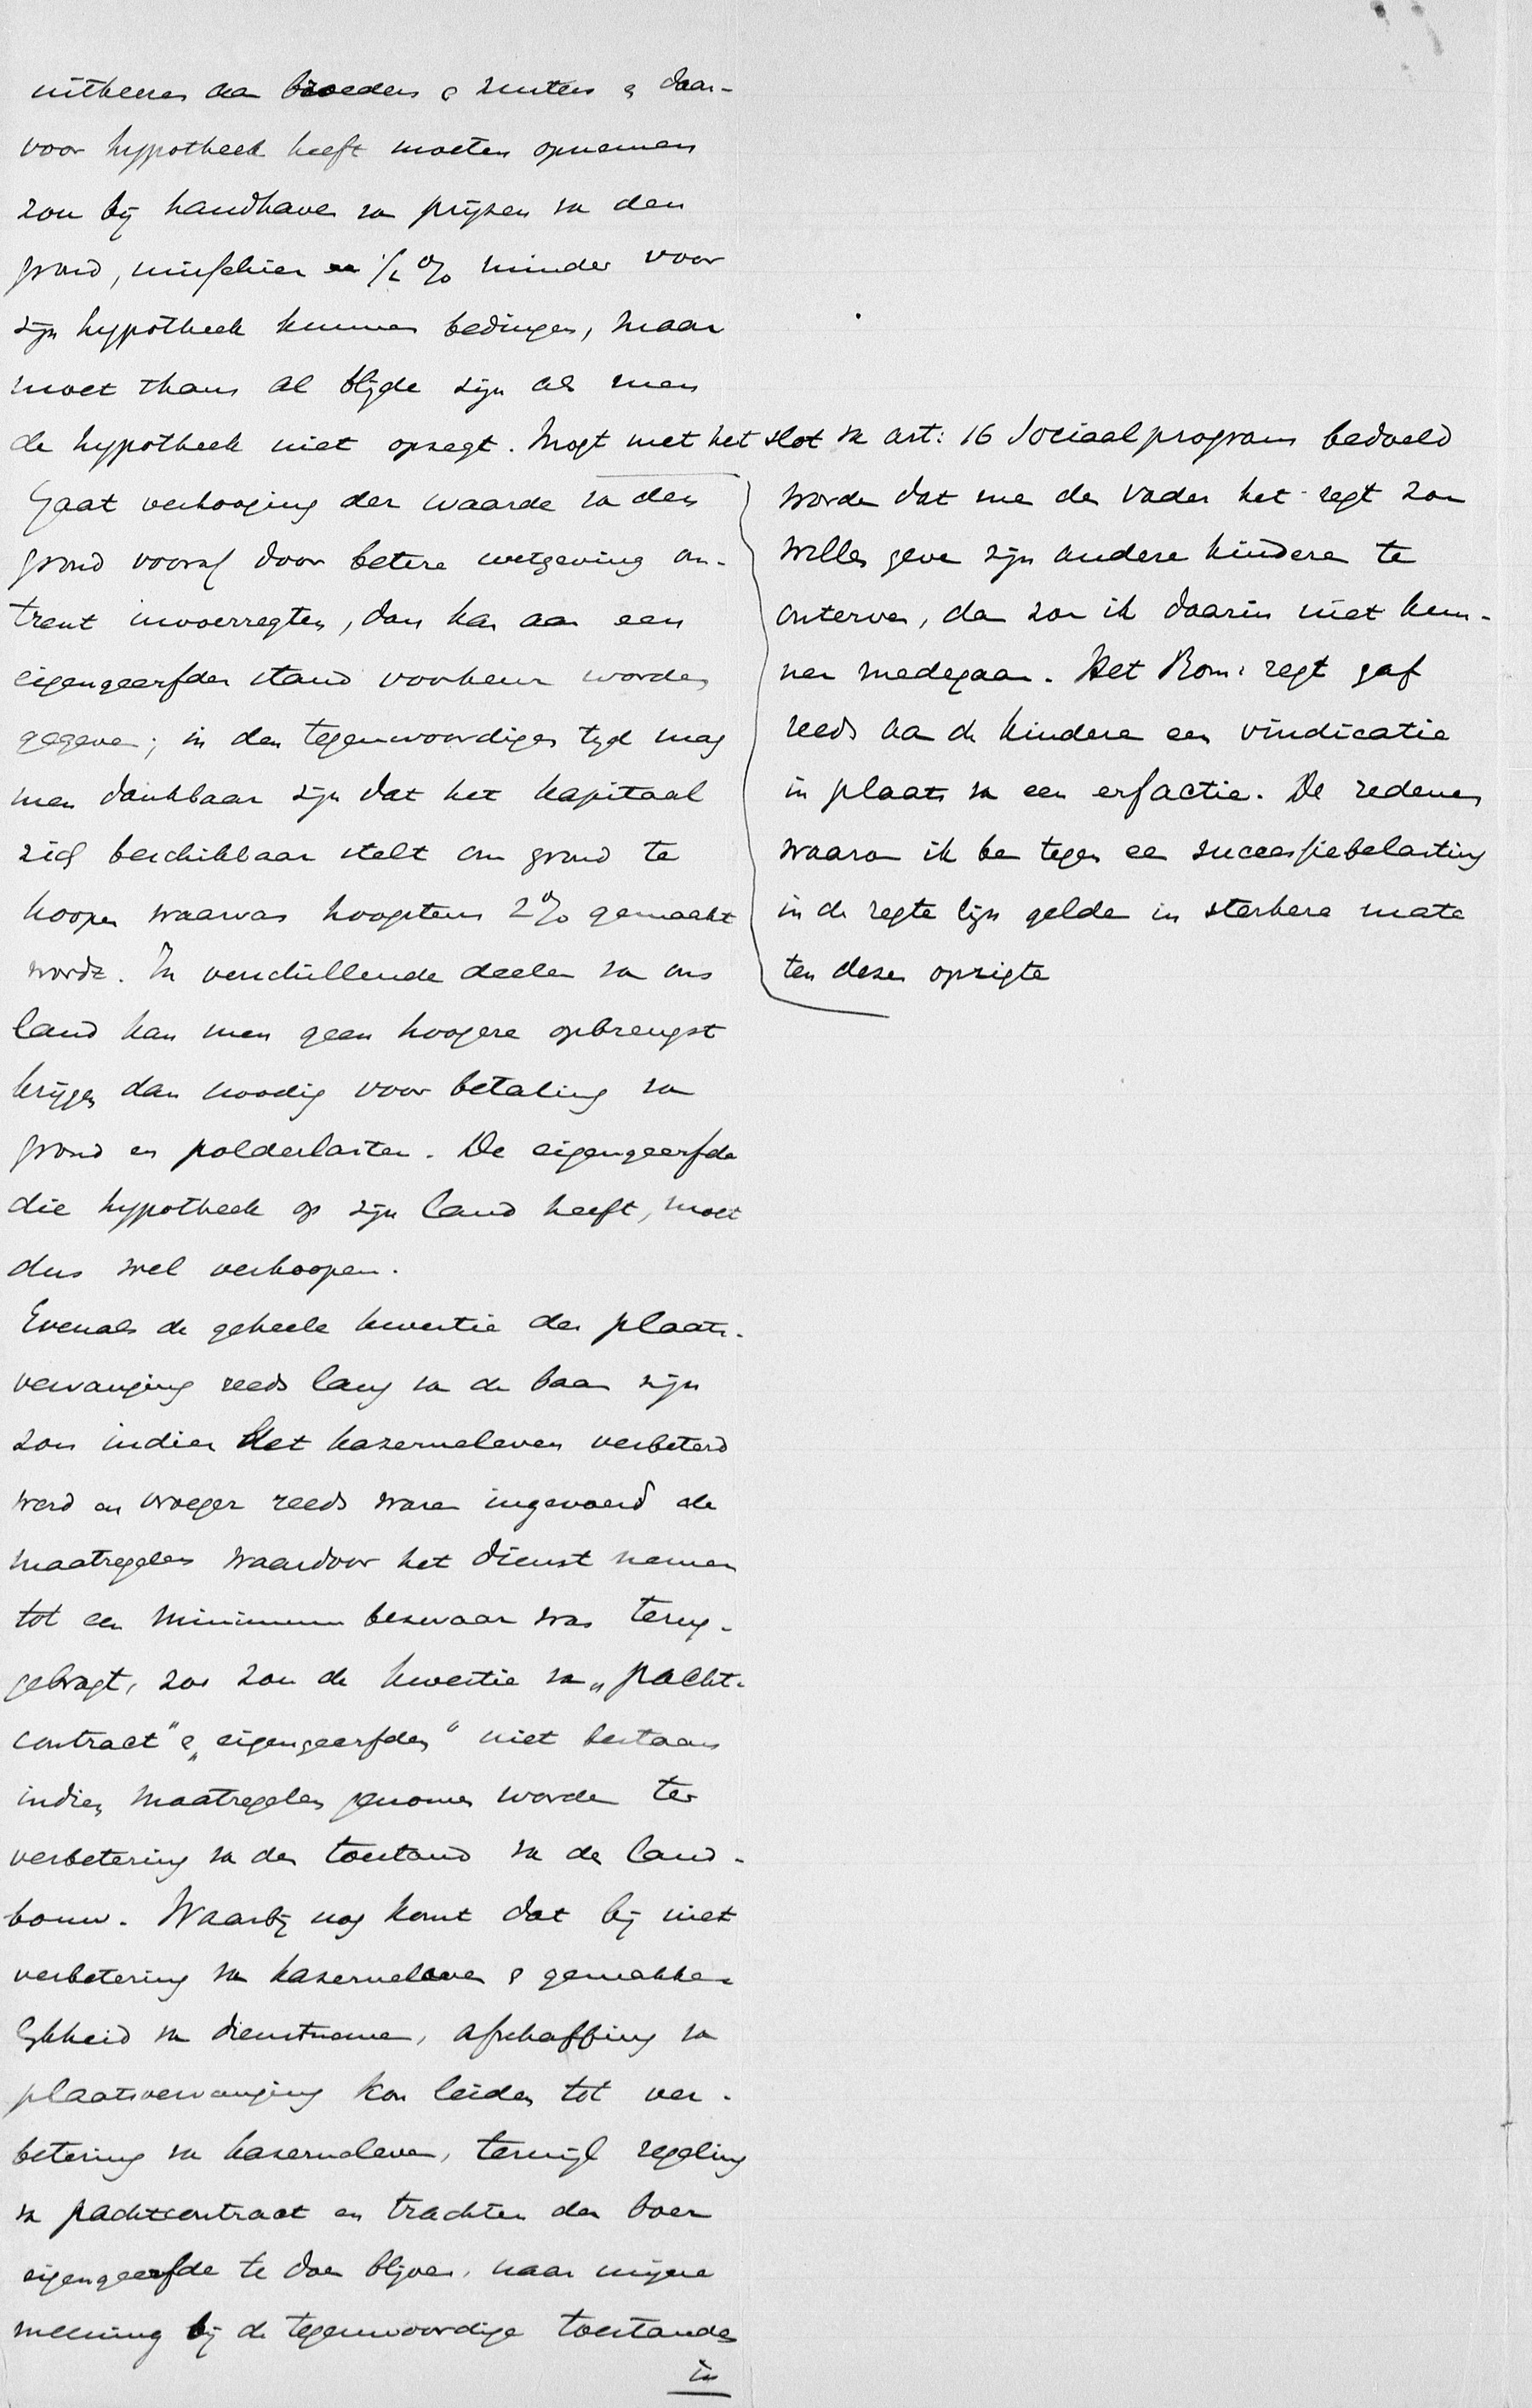 uitkeeren aan broeders & zusters & daar-
voor hypotheek heeft moeten opnemen
zou bij handhaven van prijzen van den
grond, misschien een 1/2 % minder voor
zijn hypotheek kunnen bedingen, maar
moet thans al blijde zijn als men
de hypotheek niet opzegt. Mogt met het slot van art: 16 Sociaal program bedoeld
worden dat men den vader het regt zou
willen geven zijn andere kinderen te
onterven, dan zou ik daarin niet kun-
nen medegaan. Het Rom: regt gaf
reeds aan de kinderen een vindicatie
in plaats van een erfactie. De redenen
waarom ik ben tegen een successiebelasting
in de regte lijn gelden in sterkere mate
ten dezen opzigte
Gaat verhooging der waarde van den
grond vooraf door betere wetgeving om-
trent invoerregten, dan kan aan een
eigengeerfden stand voorkeur worden
gegeven; in den tegenwoordigen tijd mag
men dankbaar zijn dat het kapitaal
zich beschikbaar stelt om grond te
koopen waarvan hoogstens 2% gemaakt
wordt. In verschillende deelen van ons
land kan men geen hoogere opbrengst
krijgen dan noodig voor betaling van
grond en polderlasten. De eigengeerfde
die hypotheek op zijn land heeft, moet
dus wel verkoopen.
Evenals de geheele kwestie der plaats-
vervanging reeds lang van de baan zijn
zou indien het kazerneleven verbeterd
werd en vroeger reeds waren ingevoerd de
maatregelen waardoor het dienst nemen
tot een minimum bezwaar was terug-
gebragt, zoo zou de kwestie van „pacht-
contract" & „eigengeerfden" niet bestaan
indien maatregelen genomen worden ter
verbetering van den toestand van den land-
bouw. Waarbij nog komt dat bij niet
verbetering van kazerneleven & gemakke-
lijkheid van dienstnemen, afschaffing van
plaatsvervanging kon leiden tot ver-
betering van kazerneleven, terwijl regeling
van pachtcontract en trachten den boer
eigengeerfde te doen blijven, naar mijne
meening bij de tegenwoordige toestanden
in